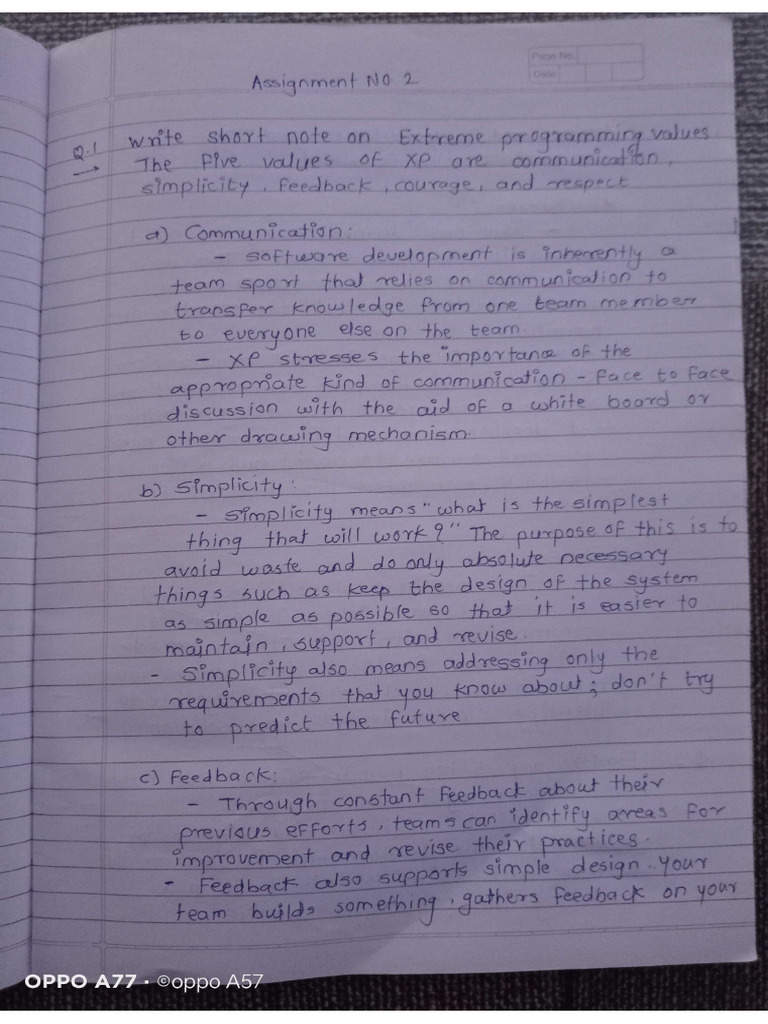 Page No.
Date
Assignment No. 2
Q.1 Write short note on Extreme programming values
The Five values of XP are communication,
simplicity, feedback, courage, and respect
a) Communication:
- software development is inherently a
team sport that relies on communication to
transfer knowledge from one team member
to everyone else on the team.
- XP stresses the importance of the
appropriate kind of communication - face to face
discussion with the aid of a white board or
other drawing mechanism.
b) Simplicity:
- Simplicity means "what is the simplest
thing that will work?" The purpose of this is to
avoid waste and do only absolute necessary
things such as keep the design of the system
as simple as possible so that it is easier to
maintain, support, and revise.
- Simplicity also means addressing only the
requirements that you know about; don't try
to predict the future
c) Feedback:
- Through constant feedback about their
previous efforts, teams can identify areas for
improvement and revise their practices.
- Feedback also supports simple design. Your
team builds something, gathers feedback on your
OPPO A77 · ©oppo A57